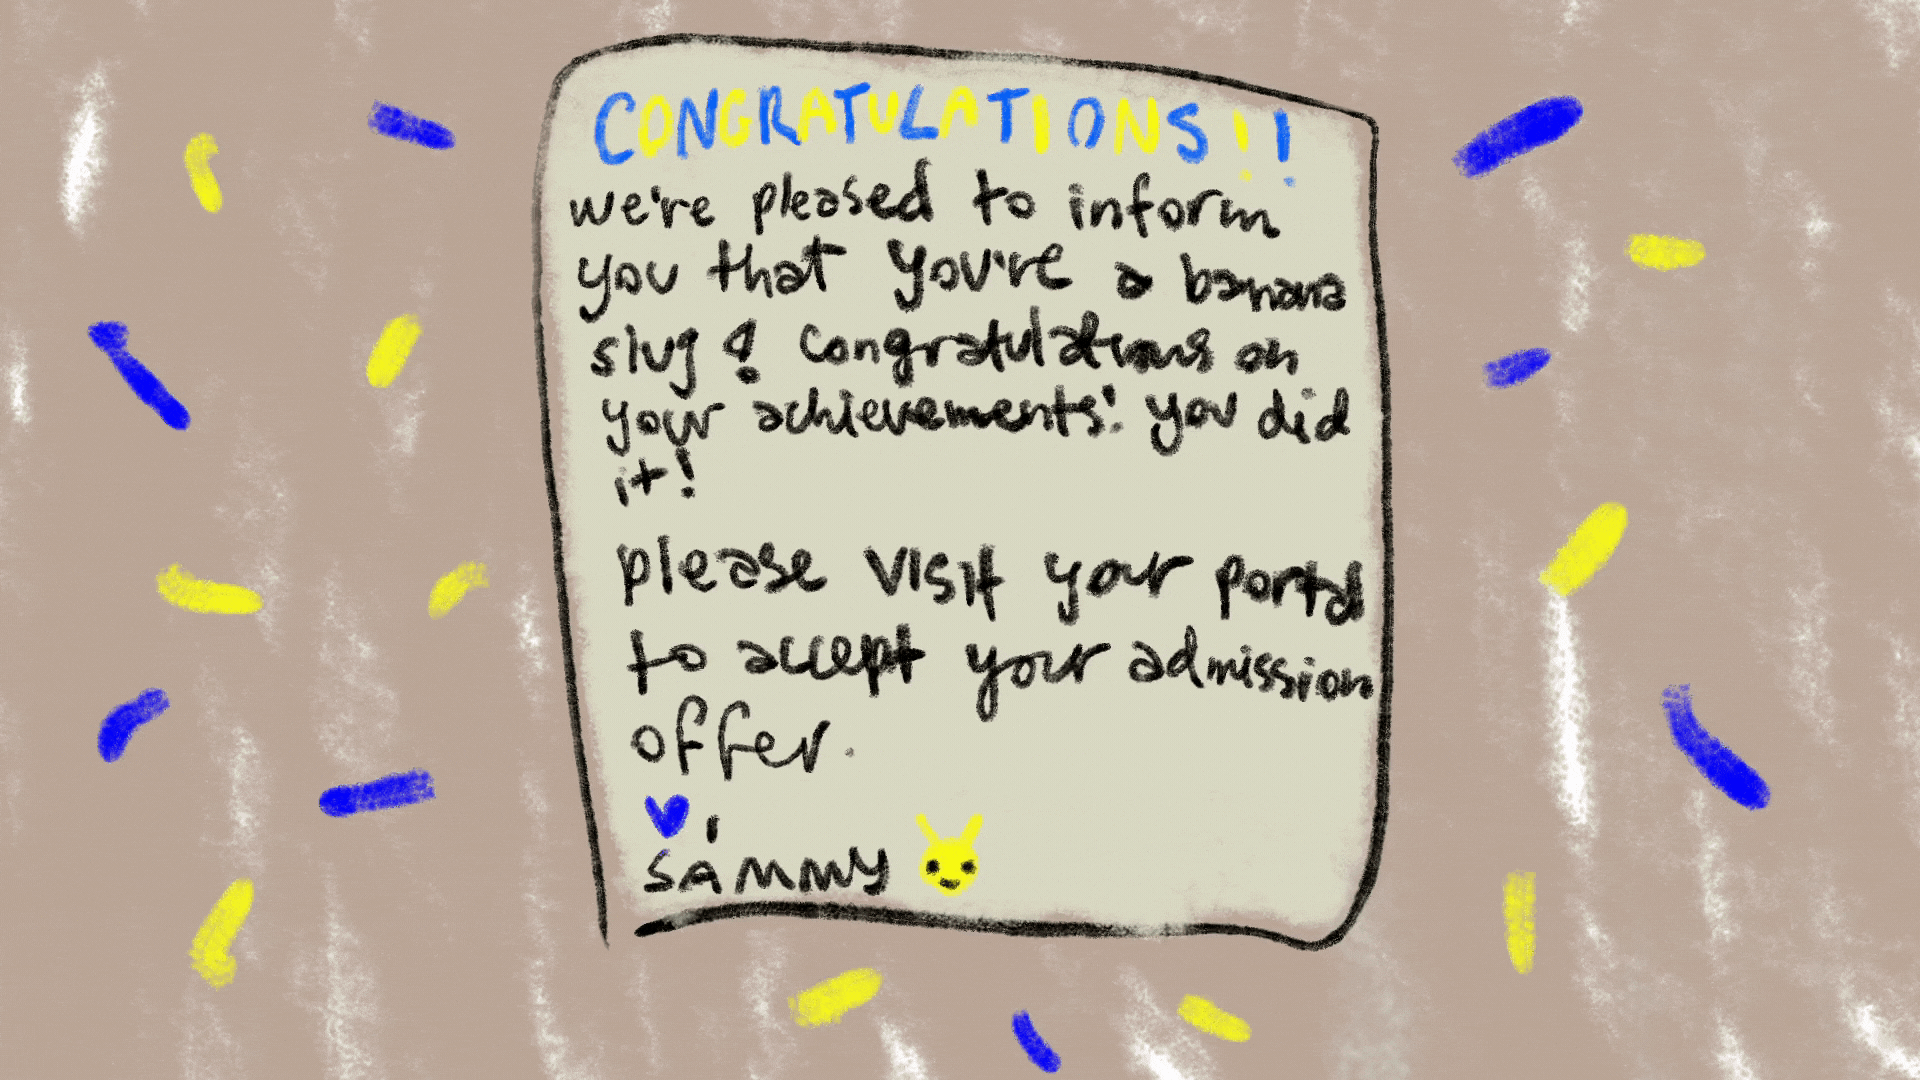 CONGRATULATIONS!!
we're pleased to inform
you that you're a banana
slug! Congratulations on
your achievements! you did
it!
please visit your portal
to accept your admission
offer.
♥,
SAMMY